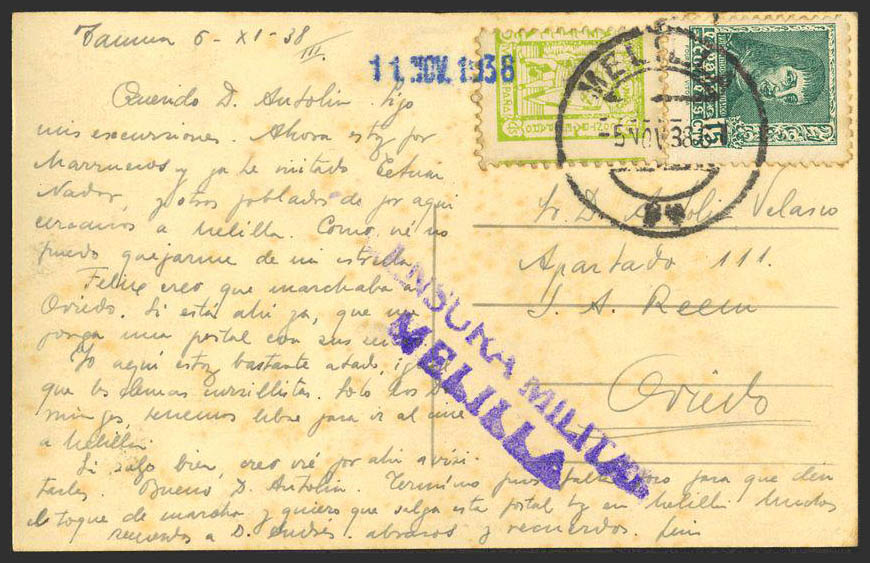 6 - XI - 38
III.
11 NOV. 1938
MELILLA
5 NOV 38
ESPAÑA
15 CTS
Querido D. Antolin. Sigo
mis excursiones. Ahora estoy por
Marruecos y ya he visitado Tetuan
Nador, y otros poblados de por aqui
cercanos a Melilla. Como vé no
puedo quejarme de mi estrella.
Felix creo que marchaba a
Oviedo. Si está ahi ya, que me
ponga una postal con sus
Yo aqui estoy bastante atado,
que los demas cursillistas. Solo los
mingos tenemos libre para ir al cine
a Melilla.
Si salgo bien, creo iré por ahi a visi-
tarles. Bueno D. Antolin. Termino pues falta para que den
el toque de marcha y quiero que salga esta postal hoy en Melilla. Muchos
recuerdos a D. Andrés abrazos y recuerdos.
Sr. D. Antolin Velasco
Apartado 111.
S. A.
Oviedo
CENSURA MILITAR
MELILLA